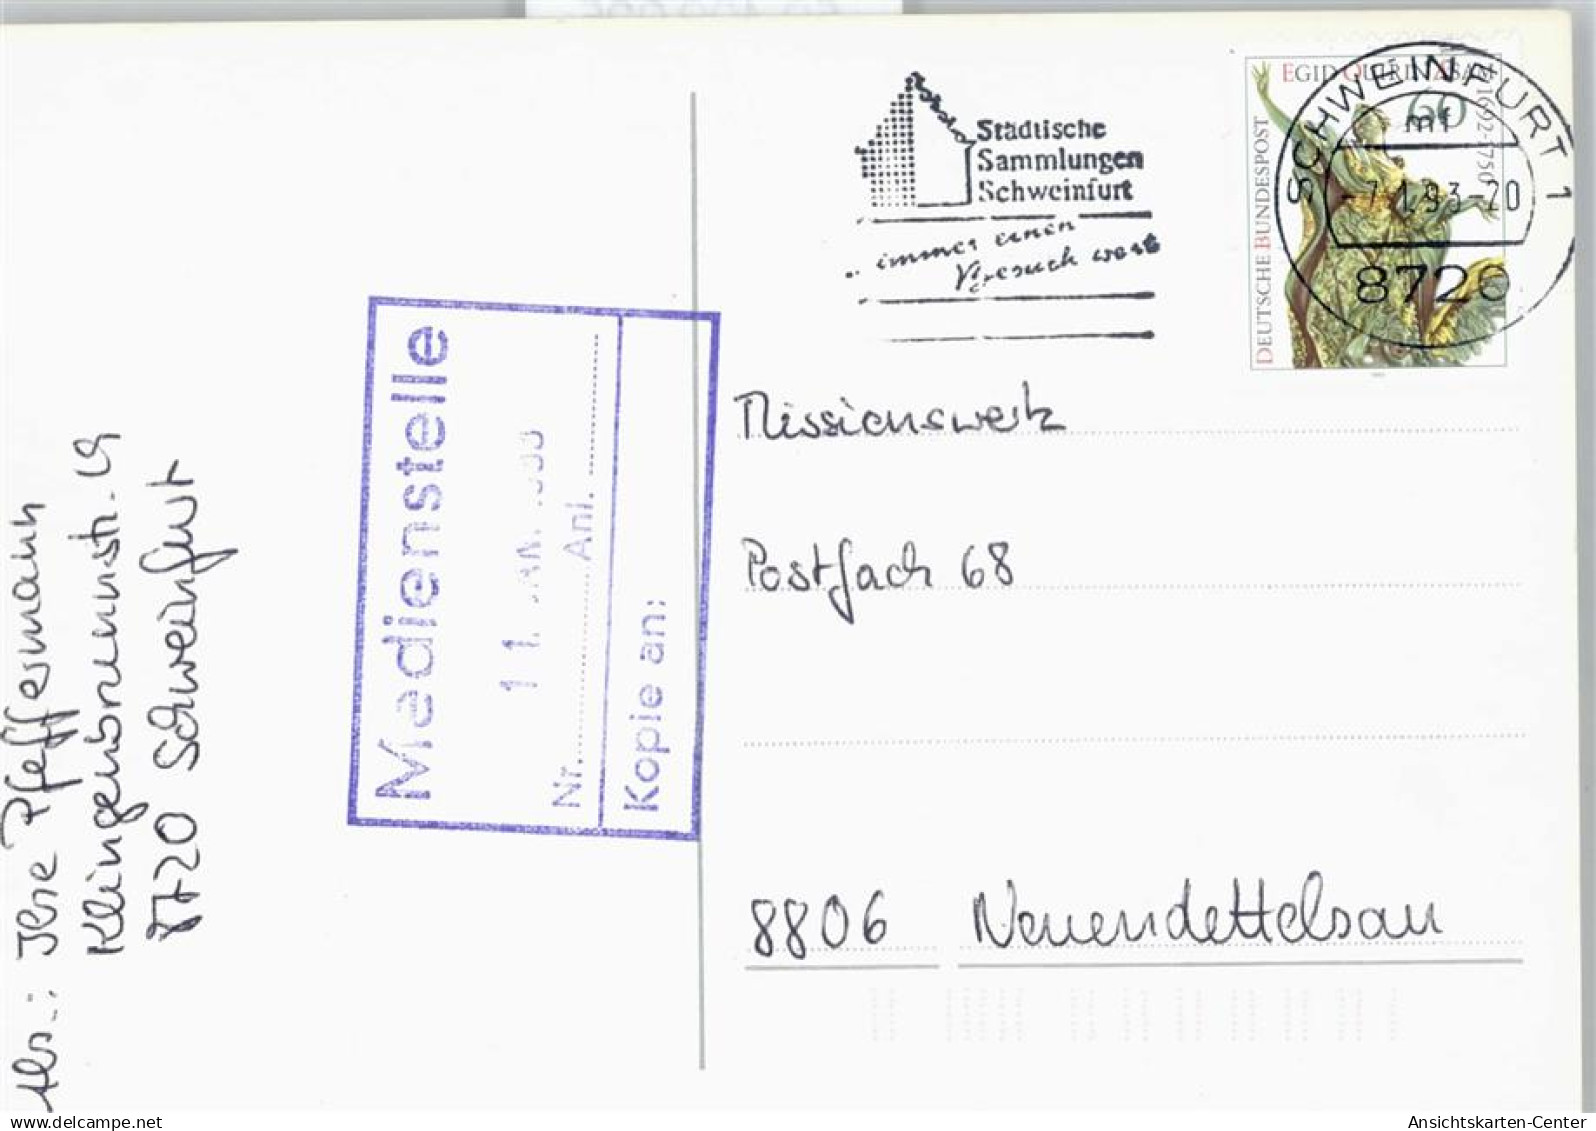 Städtische
Sammlungen
Schweinfurt
... immer einen
Besuch wert
EGID QUIRIN ASAM
1692-1750
60
DEUTSCHE BUNDESPOST
SCHWEINFURT 1
mf
-7.1.93-20
8720
Missionswerk
Postfach 68
8806 Neuendettelsau
Medienstelle
11. JAN.
Nr. Anl.
Kopie an:
Abs.: Pfeffermann
Klingenbrunnstr. 19
8720 Schweinfurt
www.delcampe.net
Ansichtskarten-Center